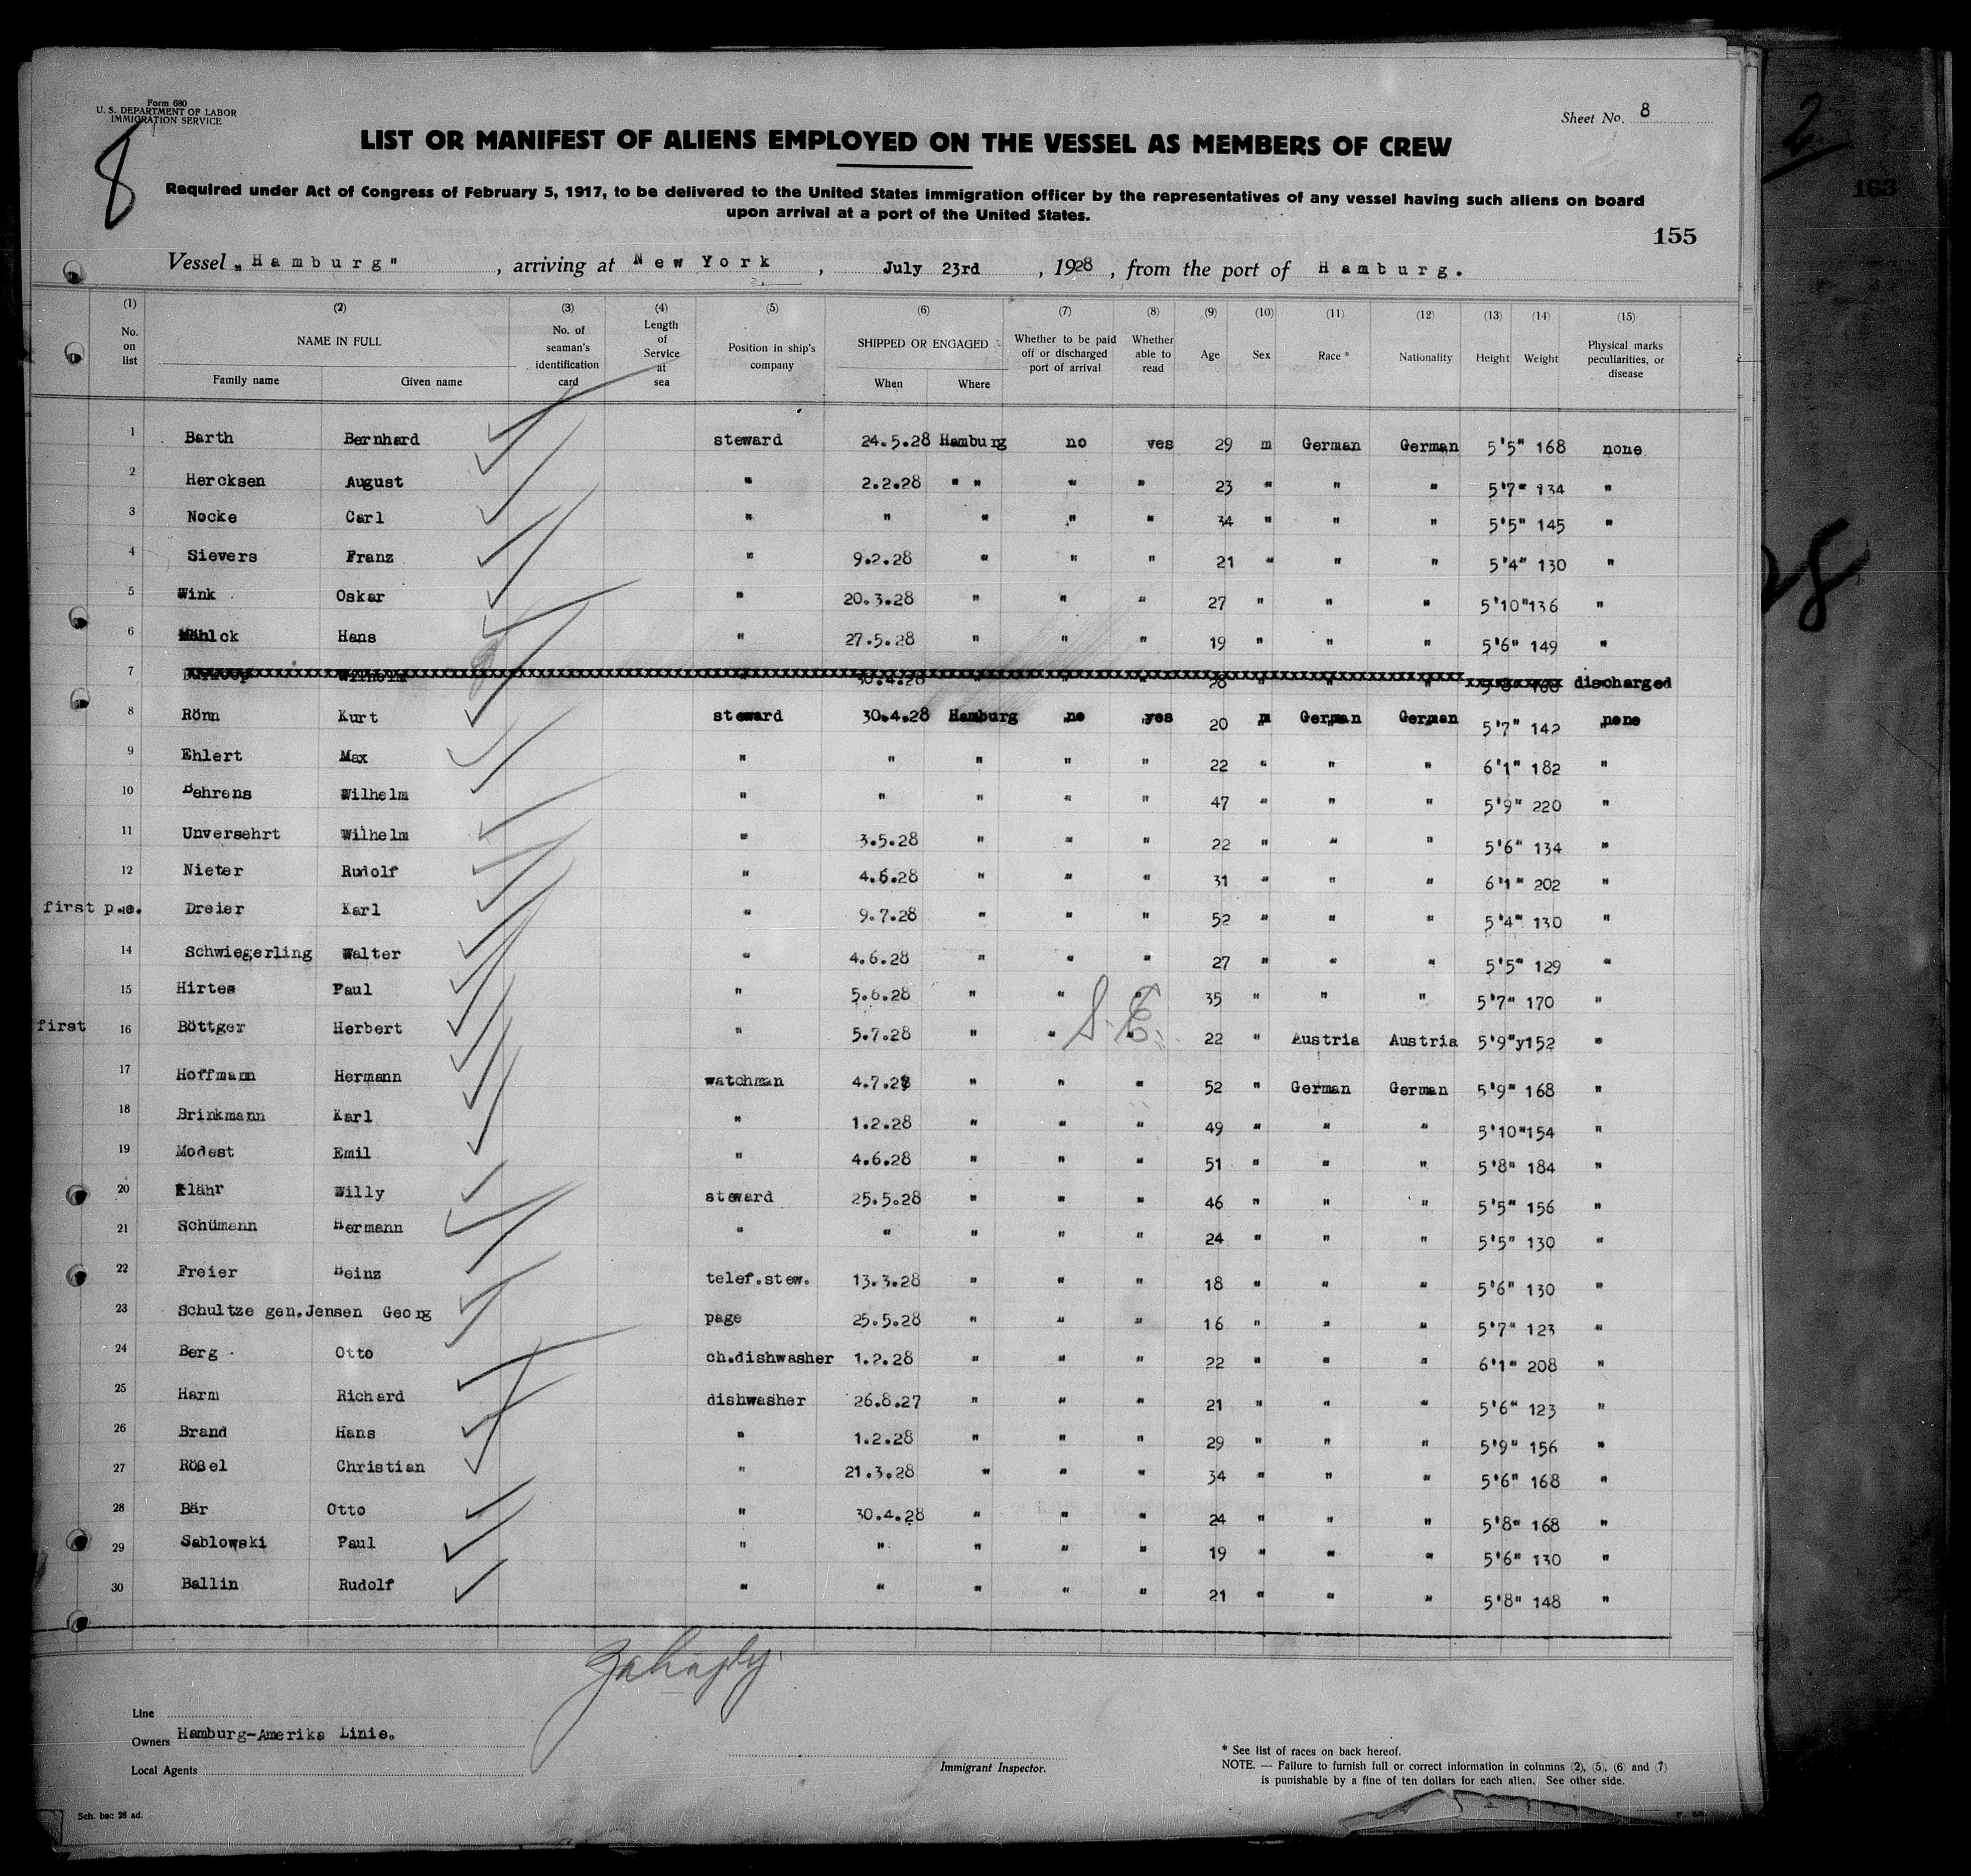 Form 680
U. S. DEPARTMENT OF LABOR
IMMIGRATION SERVICE
Sheet No. 8
8
2
LIST OR MANIFEST OF ALIENS EMPLOYED ON THE VESSEL AS MEMBERS OF CREW
Required under Act of Congress of February 5, 1917, to be delivered to the United States immigration officer by the representatives of any vessel having such aliens on board
upon arrival at a port of the United States.
163
155
Vessel „Hamburg" , arriving at New York , July 23rd , 1928 , from the port of Hamburg.
(1) (2) (3) (4) (5) (6) (7) (8) (9) (10) (11) (12) (13) (14) (15)
No. on list NAME IN FULL Family name Given name No. of seaman's identification card Length of Service at sea Position in ship's company SHIPPED OR ENGAGED When Where Whether to be paid off or discharged port of arrival Whether able to read Age Sex Race * Nationality Height Weight Physical marks peculiarities, or disease
1 Barth Bernhard steward 24.5.28 Hamburg no yes 29 m German German 5'5" 168 none
2 Hercksen August " 2.2.28 " " " " 23 " " " 5'7" 134 "
3 Nocke Carl " " " " " 34 " " " 5'5" 145 "
4 Sievers Franz " 9.2.28 " " " 21 " " " 5'4" 130 "
5 Wink Oskar " 20.3.28 " " " 27 " " " 5'10" 136 "
6 Mählck Hans " 27.5.28 " " " 19 " " " 5'6" 149 "
7 Wilhelm 30.4.28 " " " 28 " " " discharged
8 Rönn Kurt steward 30.4.28 Hamburg no yes 20 m German German 5'7" 142 none
9 Ehlert Max " " " " " 22 " " " 6'1" 182 "
10 Behrens Wilhelm " " " " " 47 " " " 5'9" 220 "
11 Unversehrt Wilhelm " 3.5.28 " " " 22 " " " 5'6" 134 "
12 Nieter Rudolf " 4.6.28 " " " 31 " " " 6'1" 202 "
first Dreier Karl " 9.7.28 " " " 52 " " " 5'4" 130 "
14 Schwiegerling Walter " 4.6.28 " " " 27 " " " 5'5" 129 "
15 Hirtes Paul " 5.6.28 " " " 35 " " " 5'7" 170 "
first 16 Böttger Herbert " 5.7.28 " " " 22 " Austria Austria 5'9"y152 "
17 Hoffmann Hermann watchman 4.7.28 " " " 52 " German German 5'9" 168 "
18 Brinkmann Karl " 1.2.28 " " " 49 " " " 5'10" 154 "
19 Modest Emil " 4.6.28 " " " 51 " " " 5'8" 184 "
20 Klähr Willy steward 25.5.28 " " " 46 " " " 5'5" 156 "
21 Schümann Hermann " " " " " 24 " " " 5'5" 130 "
22 Freier Heinz telef.stew. 13.3.28 " " " 18 " " " 5'6" 130 "
23 Schultze gen.Jensen Georg page 25.5.28 " " " 16 " " " 5'7" 123 "
24 Berg Otto ch.dishwasher 1.2.28 " " " 22 " " " 6'1" 208 "
25 Harm Richard dishwasher 26.8.27 " " " 21 " " " 5'6" 123 "
26 Brand Hans " 1.2.28 " " " 29 " " " 5'9" 156 "
27 Rößel Christian " 21.3.28 " " " 34 " " " 5'6" 168 "
28 Bär Otto " 30.4.28 " " " 24 " " " 5'8" 168 "
29 Sablowski Paul " " " " " 19 " " " 5'6" 130 "
30 Ballin Rudolf " " " " " 21 " " " 5'8" 148 "
Line
Owners Hamburg-Amerika Linie.
Local Agents
Immigrant Inspector.
* See list of races on back hereof.
NOTE. — Failure to furnish full or correct information in columns (2), (5), (6) and (7)
is punishable by a fine of ten dollars for each alien. See other side.
Sch. bac 28 ad.
28